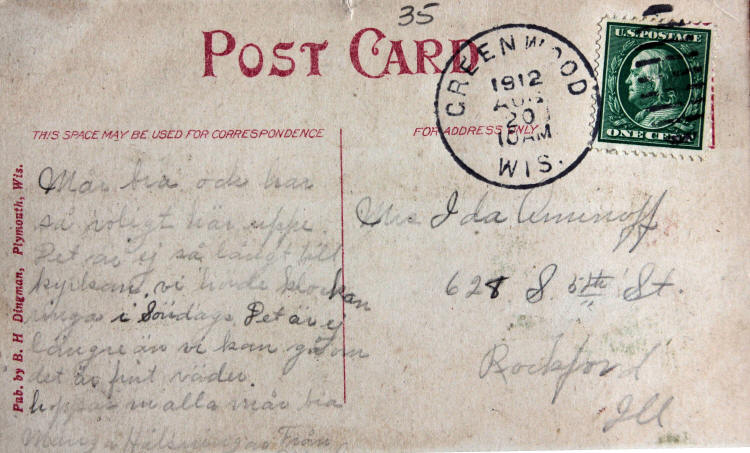 35
POST CARD
GREENWOOD
1912
AUG
20
10AM
WIS.
U.S. POSTAGE
ONE CENT
THIS SPACE MAY BE USED FOR CORRESPONDENCE
FOR ADDRESS ONLY
Pub. by B. H Dingman, Plymouth, Wis.
Mår bra och har
så roligt här uppe.
Det är ej så långt till
kyrkan, vi horde klockan
ringa i Söndags Det är ej
längre än vi kan gå om
det är fint väder.
hoppas ni alla mår bra
Många Hälsningar Från
Mrs Ida Aminoff
628 S 5th St.
Rockford
Ill